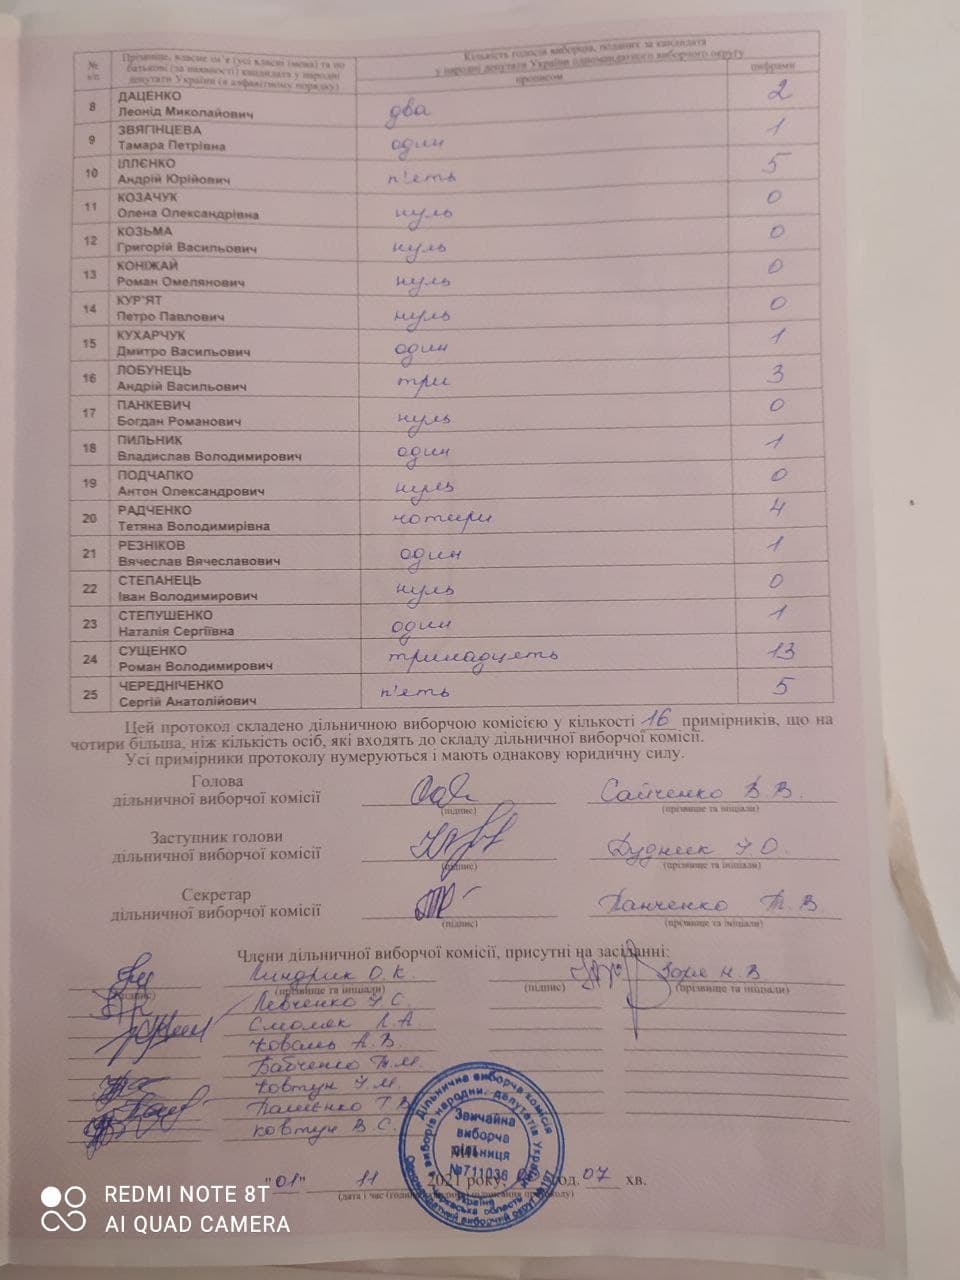 № з/п
Прізвище, власне ім'я (усі власні імена) та по батькові (за наявності) кандидата у народні депутати України (в алфавітному порядку)
Кількість голосів виборців, поданих за кандидата
у народні депутати України одномандатного виборчого округу
прописом
цифрами
8 ДАЦЕНКО Леонід Миколайович два 2
9 ЗВЯГІНЦЕВА Тамара Петрівна один 1
10 ІЛЛЄНКО Андрій Юрійович п'еть 5
11 КОЗАЧУК Олена Олександрівна нуль 0
12 КОЗЬМА Григорій Васильович нуль 0
13 КОНІЖАЙ Роман Омелянович нуль 0
14 КУР'ЯТ Петро Павлович нуль 0
15 КУХАРЧУК Дмитро Васильович один 1
16 ЛОБУНЕЦЬ Андрій Васильович три 3
17 ПАНКЕВИЧ Богдан Романович нуль 0
18 ПИЛЬНИК Владислав Володимирович один 1
19 ПОДЧАПКО Антон Олександрович нуль 0
20 РАДЧЕНКО Тетяна Володимирівна чотири 4
21 РЕЗНІКОВ Вячеслав Вячеславович один 1
22 СТЕПАНЕЦЬ Іван Володимирович нуль 0
23 СТЕПУШЕНКО Наталія Сергіївна один 1
24 СУЩЕНКО Роман Володимирович тринадцеть 13
25 ЧЕРЕДНІЧЕНКО Сергій Анатолійович п'еть 5
Цей протокол складено дільничною виборчою комісією у кількості 16 примірників, що на
чотири більша, ніж кількість осіб, які входять до складу дільничної виборчої комісії.
Усі примірники протоколу нумеруються і мають однакову юридичну силу.
Голова
дільничної виборчої комісії Сайченко В.В.
(підпис) (прізвище та ініціали)
Заступник голови
дільничної виборчої комісії Дудник Т.О.
(підпис) (прізвище та ініціали)
Секретар
дільничної виборчої комісії Панченко Т.В.
(підпис) (прізвище та ініціали)
Члени дільничної виборчої комісії, присутні на засіданні:
Линдрик О.К. Зоря Н.В
(підпис) (прізвище та ініціали) (підпис) (прізвище та ініціали)
Левченко Т.С.
Смоляк Л.А
Коваль А.В.
Бабченко Т.М.
Ковтун Т.М.
Т.В
Ковтун В.С.
Дільнична виборча комісія
з виборів народних депутатів України
Звичайна
виборча
дільниця
№711036
Україна
Черкаська область
Одномандатний виборчий округ
"01" 11 2021 року, год. 07 хв.
(дата і час підписання протоколу)
REDMI NOTE 8T
AI QUAD CAMERA